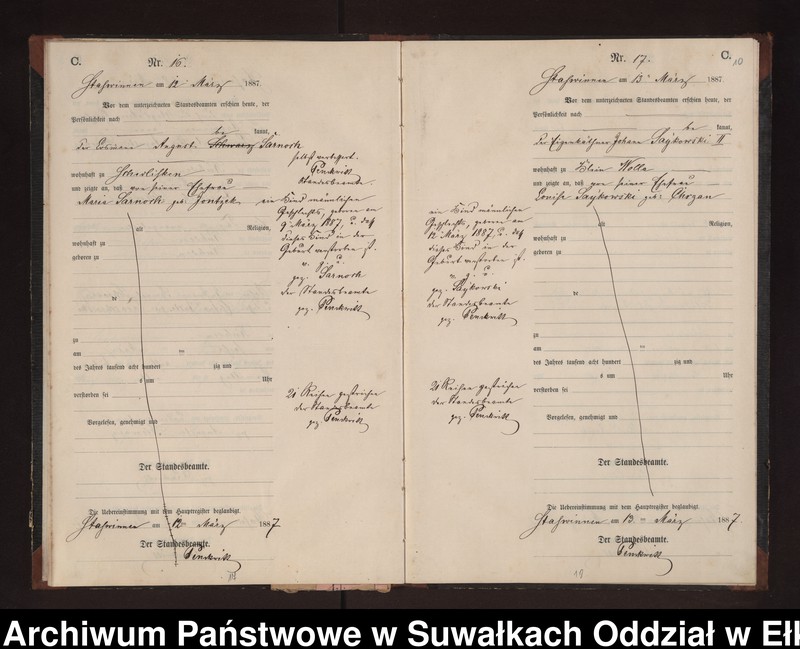 C.
Nr. 16.
am 12 März 1887.
Vor dem unterzeichneten Standesbeamten erschien heute, der
Persönlichkeit nach
be kannt,
der August Sarnoch
wohnhaft zu
und zeigte an, daß von seiner Ehefrau
Maria Sarnoch geb. ein Kind männlichen
Geschlechts, geboren am
9. März 1887, u. daß
dieses Kind in der
Geburt verstorben ist.
v. g. u.
gez. Sarnoch
der Standesbeamte
gez.
Standesbeamte.
alt Religion,
wohnhaft zu
geboren zu
de
zu
am
des Jahres tausend acht hundert zig und
um Uhr
verstorben sei
Vorgelesen, genehmigt und
21 Reihen gestrichen
der Standesbeamte
gez.
Der Standesbeamte.
Die Uebereinstimmung mit dem Hauptregister beglaubigt.
am 12 ten März 1887
Der Standesbeamte.
Nr. 17.
C.
10
am 13 März 1887
Vor dem unterzeichneten Standesbeamten erschien heute, der
Persönlichkeit nach
be kannt,
der Eigenkäthner Johann Saykowski II
wohnhaft zu Klein Wolla
und zeigte an, daß von seiner Ehefrau
Louise Saykowski geb. Chozan
ein Kind männlichen
Geschlechts, geboren am
12 März 1887, u. daß
dieses Kind in der
Geburt verstorben ist.
v. g. u.
gez. Saykowski
der Standesbeamte
gez.
alt Religion,
wohnhaft zu
geboren zu
de
zu
am
des Jahres tausend acht hundert zig und
um Uhr
verstorben sei
Vorgelesen, genehmigt und
21 Reihen gestrichen
der Standesbeamte
gez.
Der Standesbeamte.
Die Uebereinstimmung mit dem Hauptregister beglaubigt.
am 13 ten März 1887
Der Standesbeamte.
Archiwum Państwowe w Suwałkach Oddział w Ełk